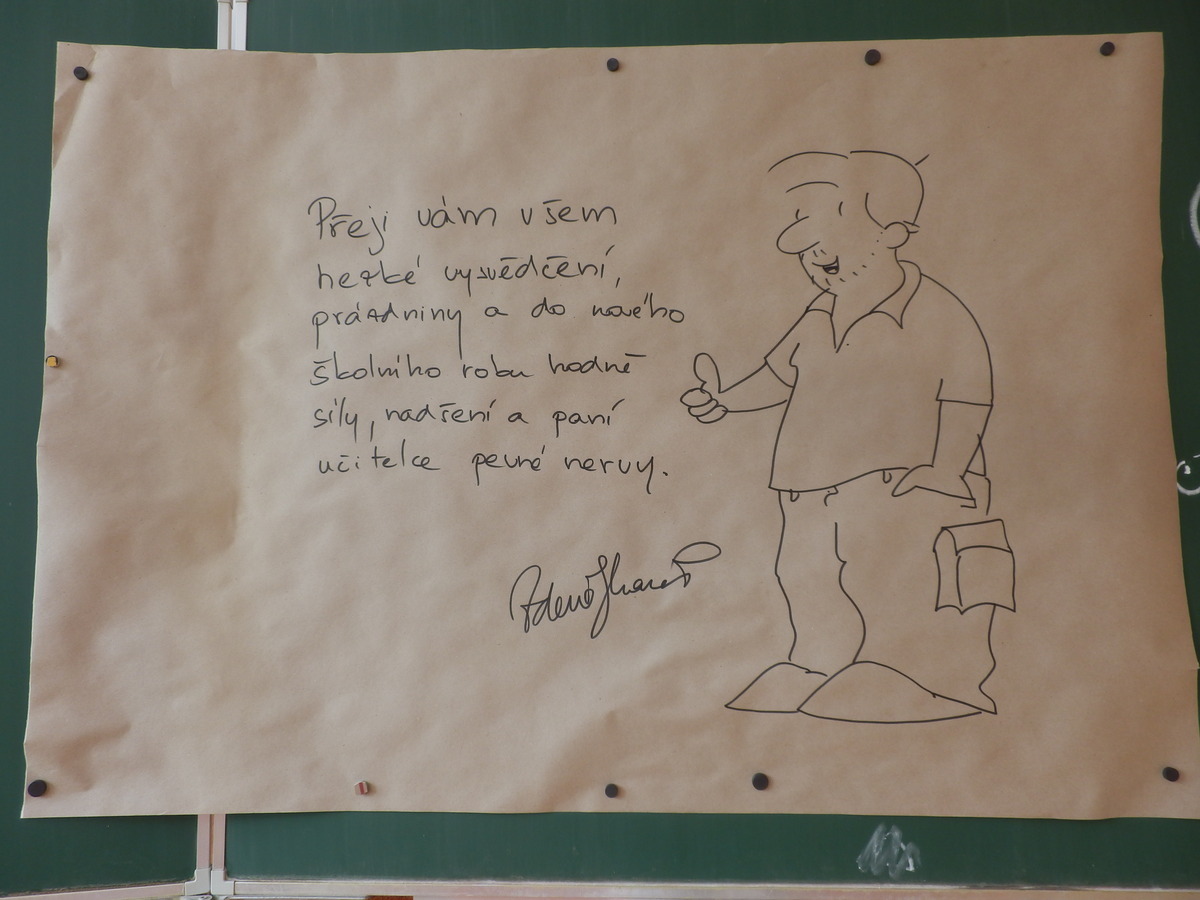 Přeji vám všem
hezké vysvědčení,
prázdniny a do nového
školního roku hodně
síly, nadšení a paní
učitelce pevné nervy.